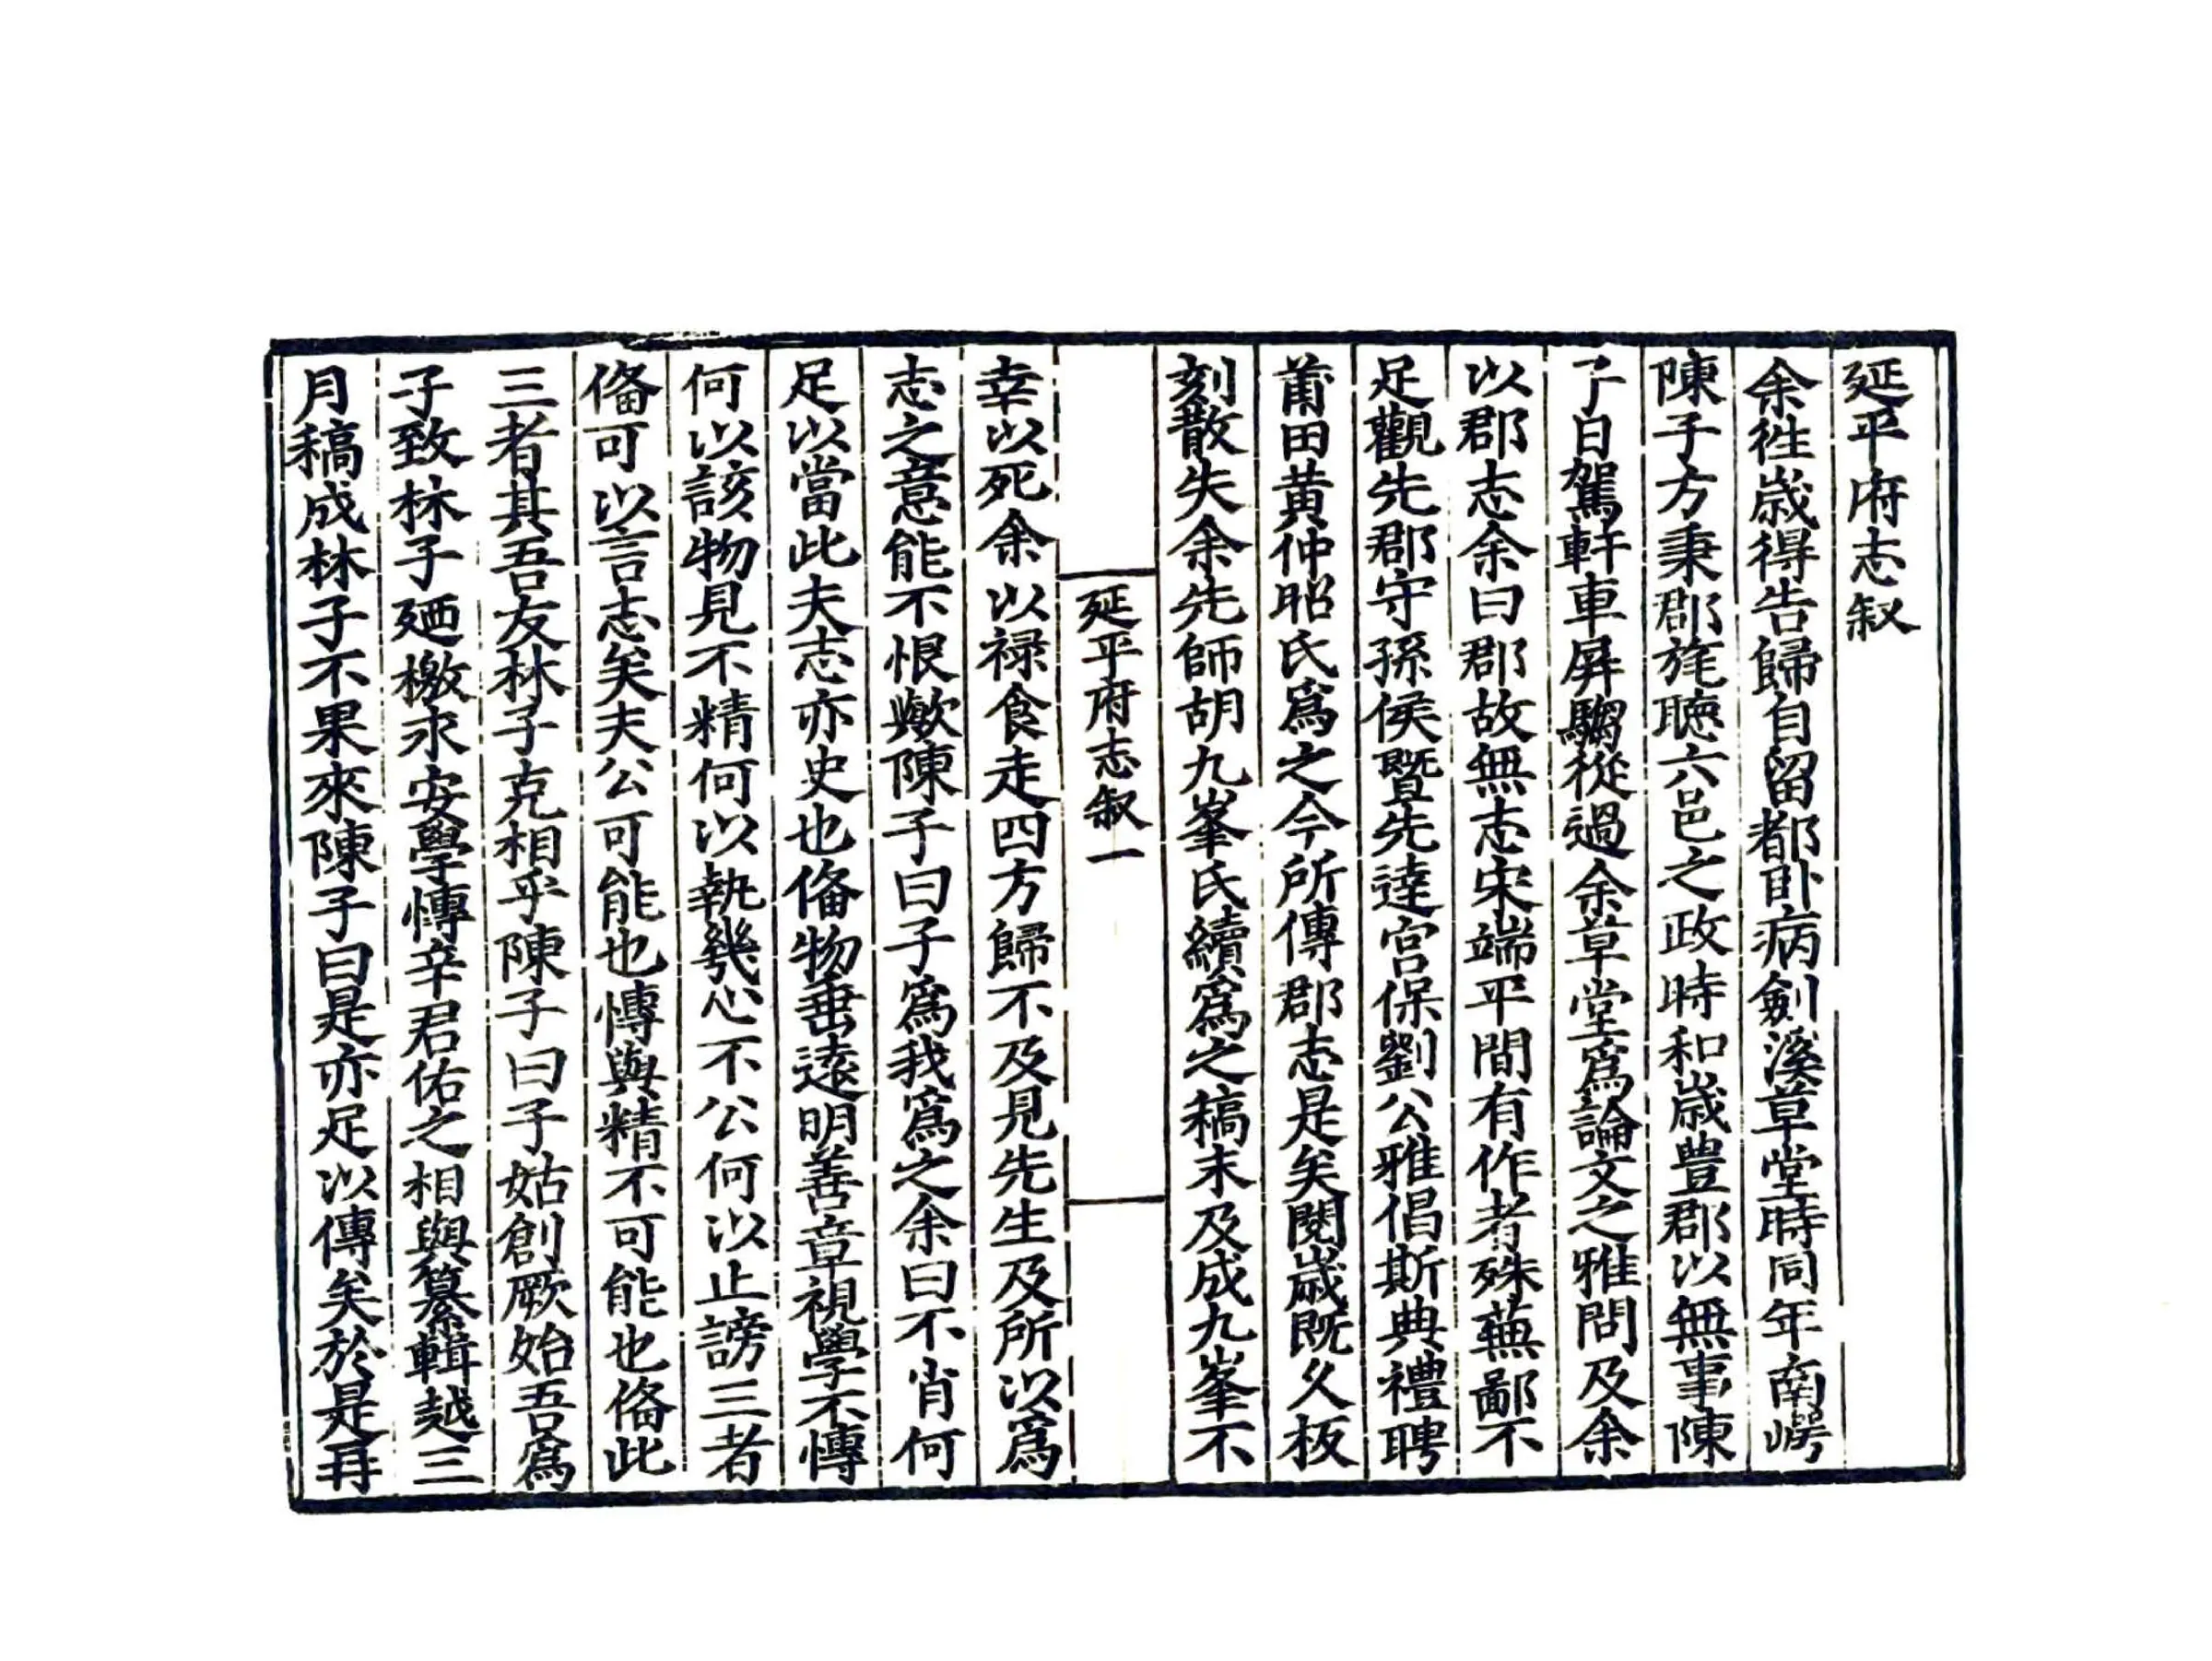 延平府志叙
余徃歳得告歸自留都卧病劍溪草堂時同年南㟧
陳子方秉郡旄聽六邑之政時和歳豊郡以無事陳
子日駕軒車屏騶從過余草堂爲論文之雅問及余
以郡志余曰郡故無志宋端平間有作者殊蕪鄙不
足觀先郡守孫侯暨先達宫保劉公雅倡斯典禮聘
莆田黄仲昭氏爲之今所傳郡志是矣閱歳既久板
刻散失余先師胡九峯氏續爲之稿未及成九峯不
延平府志叙一
幸以死余以禄食走四方歸不及見先生及所以爲
志之意能不恨歟陳子曰子爲我爲之余曰不肖何
足以當此夫志亦史也俻物垂逺明善章視學不慱
何以該物見不精何以執㡬心不公何以止謗三者
俻可以言志矣夫公可能也慱與精不可能也俻此
三者其吾友林子克相乎陳子曰子姑創厥始吾爲
子致林子廼檄永安學慱辛君佑之相與纂輯越三
月稿成林子不果來陳子曰是亦足以傳矣於是再